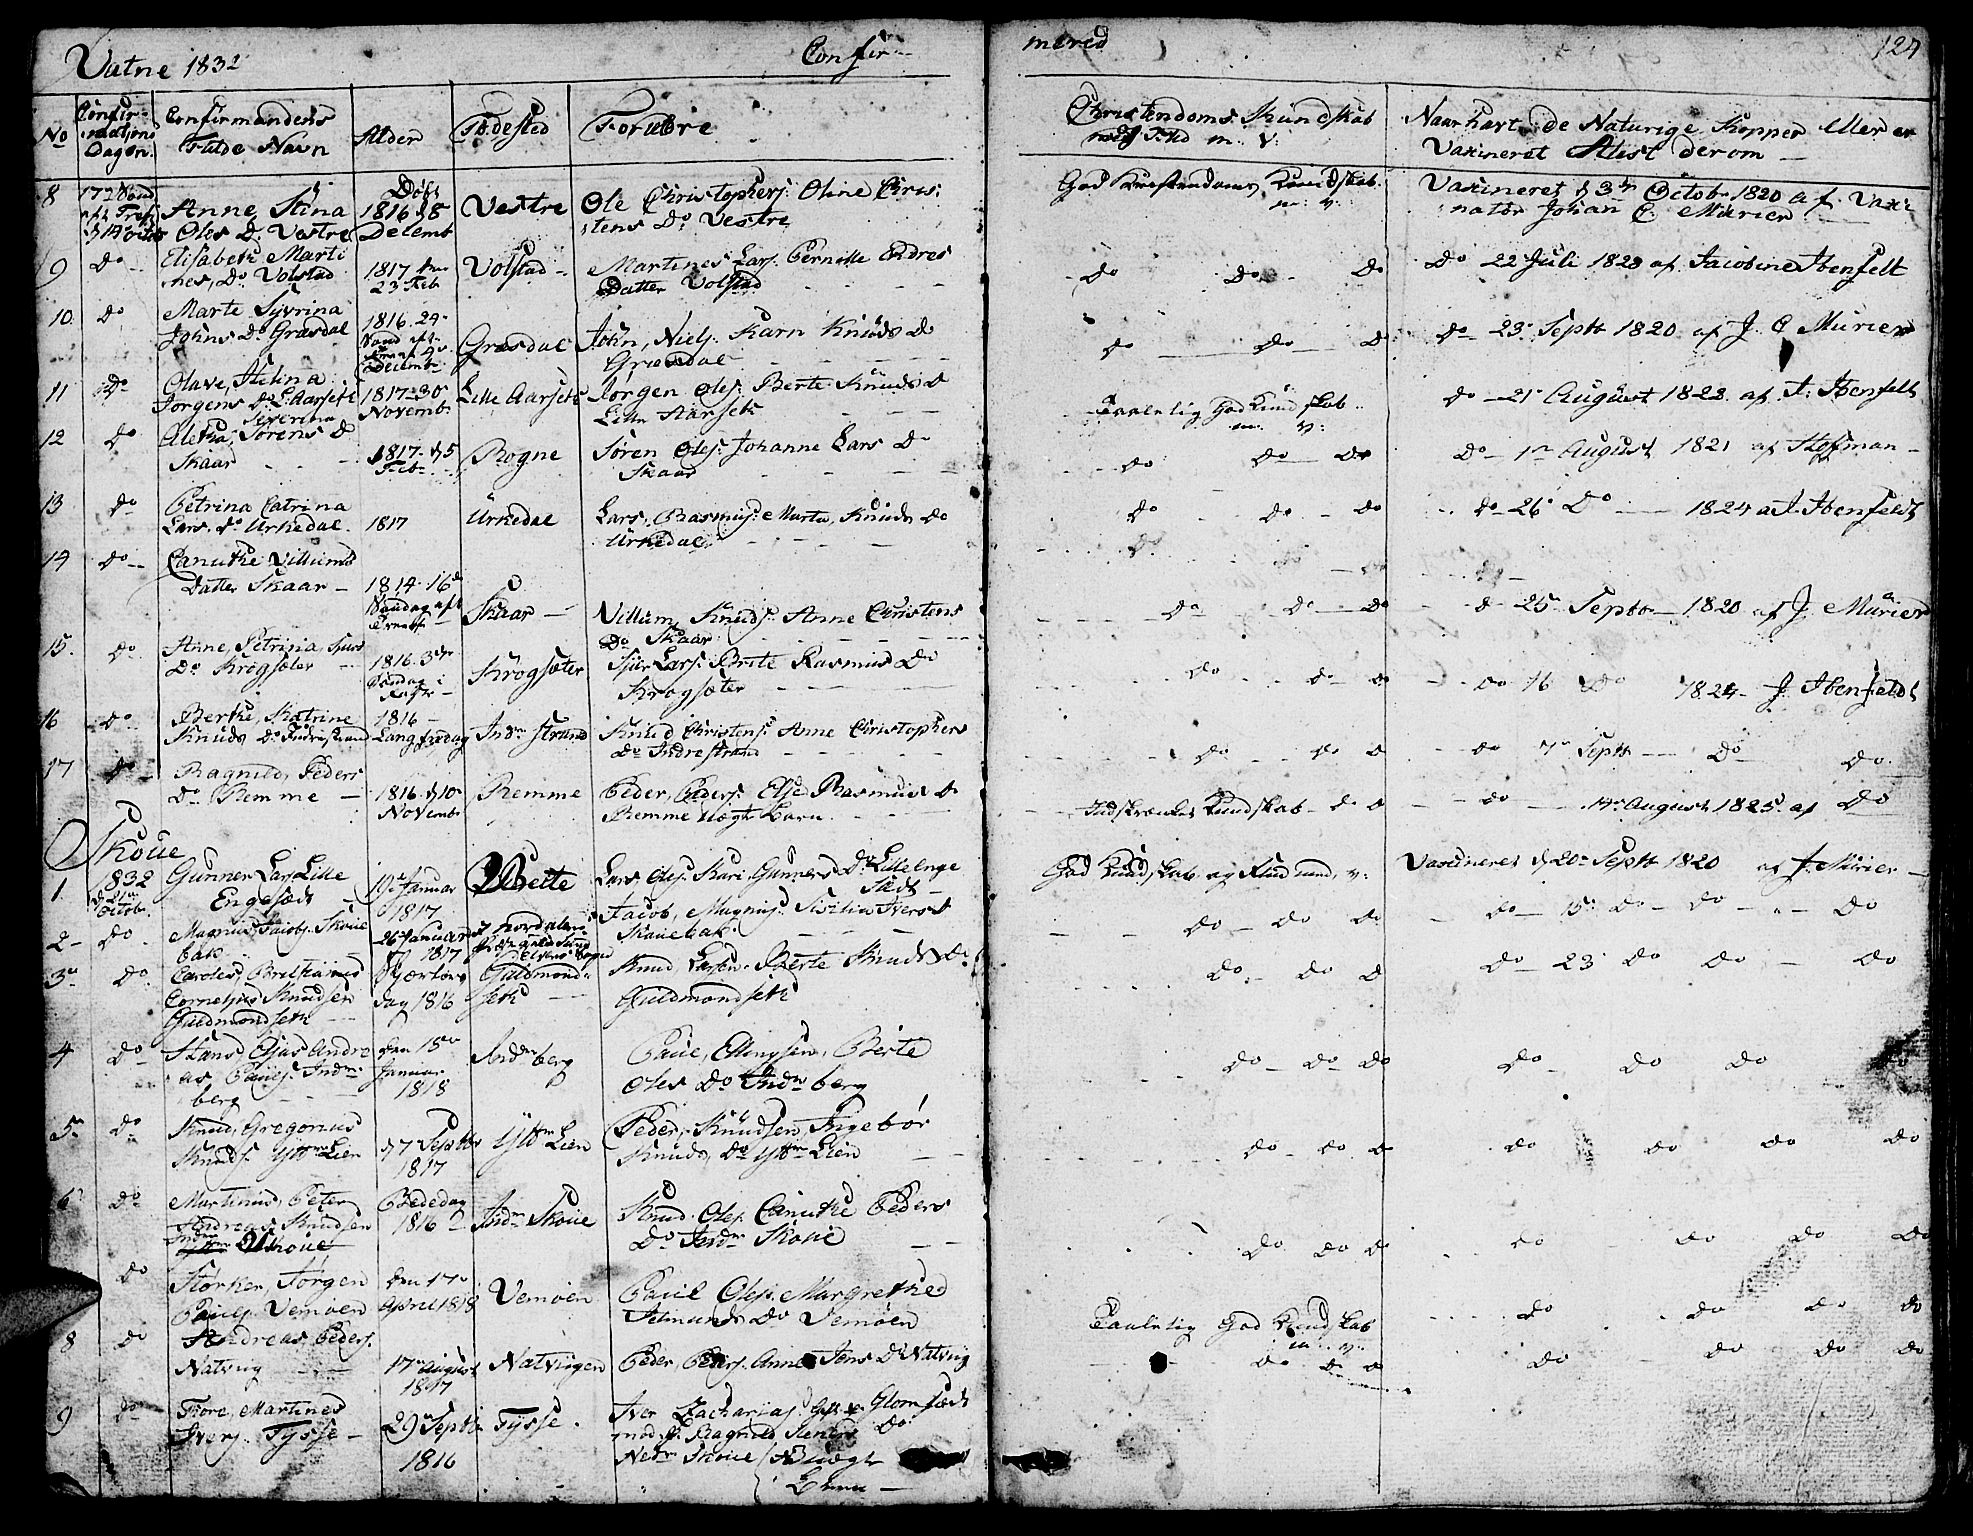 Vatne 1832 Confir-
mered 124
No Confir- mations Dagen. Confirmandens Fulde Navn Alder Fødested Forældre
Christendoms Kundskab med Flid m. V.
Naar havt de Naturlige Kopper eller er Vaxineret Atest derom —
8 Anne Stina Oles D. Vestre Døbt 1816 d 8 Decemb Vestre Ole Christophersj. Oline Chris- tens Do Vestre
God Kristendoms Kundskab. m: v:
Vaxineret d 3de Octobr 1820 af Vaxi- natør Johan C Mürier
9 Do Elisabeth Marti nes, Do Volstad 1817 den 23 Feb Volstad Martines Lars. Pernille Endres Datter Volstad
Do Do Do Do 22 Juli 1823 af Jacobine Ibenfelt
10. Do Marte Syvrina Johns Do Græsdal 1816. 29 Decemb. Græsdal John, Nielsj. Karn Knuds Do Græsdal
Do Do Do Do 23 Septb 1820 af J. C Mürier
11 Do Olave, Helina Jørgens Do L. Aarseth 1817 30 Novemb Lille Aarseth Jørgen Olesj. Berte Knuds D Lille Aarseth
Taalelig God Kundskab m: v: Do 21 August 1823 af J. Ibenfelt
12 Do Severina Sørens D Skaar 1817. d 5 Feb Rogne Søren Olesj. Johanne Lars D Skaar
Do Do Do Do 1 August 1821 af Hoffman
13 Do Petrina Catrina Lars. Do Urkedal. 1817 Urkedal Lars, Rasmusj. Marta, Knuds Do Urkedal
Do Do Do Do 26 Do 1824 af J. Ibenfeldt
14 Do Canuthe Villums Datter Skaar 1814. 16 Skaar Villum Knudsj. Anne Christens Do Skaar
Do Do Do Do 25 Septb 1820 af J. Mürier
15. Do Anne, Petrina, Do Krogsæter 1816. 3de Søndag i Krogsæter Lars. Brite Rasmus Do Krogsæter
Do Do Do Do 16 Do 1824 J. Ibenfeldt
16 Do Berthe, Katrine Knuds Do Indrestrand 1816 Langfredag Indre strand Knud Christensj. Anne Christophers Do Indrestrand
Do Do D Do 7 Septb Do Do
17 Do Ragnild, Peders Do Remme 1816 d 10 Novemb Remme Peder, Pedersj. Else Rasmus D Remme Uægte Barn
Indskrænket Kundskab Do D Do 14 August 1825 af Do
Skoue
1. 1832 d 21 Octob. Gunner Larsj. Lille Engesædt 19 Januar 1817 Lars, Olesj. Kari Gunners Do Lille Enge Sædt
God Kundskab og Flid m. v: Vaxineret d 20 Septb 1820 af J. Mürier
2 Do Magnus Jacobsj. Skoue bak 26 Januar 1817 Jacob, Magnusj. Sisilia Ivers D Skouebak
Do Do Do Do 15 Do Do Do
3 Do Cornelius Knudsen Guldmondseth dag 1816 Guldmond- seth Knud, Larsen. Berte Knuds Do Guldmondseth
Do Do D Do 23 Do Do Do
4 Do Hans Eljas Andre as, Paulsj. Indre berg den 18 Januar 1818 Indreberg Paul, Ellingsen, Berte Oles Do Indre berg
Do Do Do Do Do Do Do
5 Do Knud, Gregorius Knuds. Ytre Lien d 7 Septb 1817 Ytre Lien Peder, Knudsen Ingebor Knuds, Do Ytre Lien
Do Do D Do Do Do Do
6 Do Martinus, Peter Andreas Knudsen Indre Skoue Bededag 1816 Indre Skoue Knud Olesj. Canuthe Peders Do Indre Skoue
Do Do D Do Do Do Do
Do Størker, Jørgen Paulsj. Vemøen den 17 April 1818 Vemøen Paul Olesj. Margrethe Do Vemøen
Taalelig God Kundskab m. v: Do Do Do Do
8 Do Andreas, Pedersj. Natvig 17 August 1817 Natvigen Peder, Pedersj. Anne Jens D Natvig
Do D D Do Do Do Do
9 Do Tore, Martines Iversj. Tysse 29 Septb 1816 Tysse. Iver Zachariasj. Glomsædt med Ragnild Do Nedre Skoue Uægte Barn